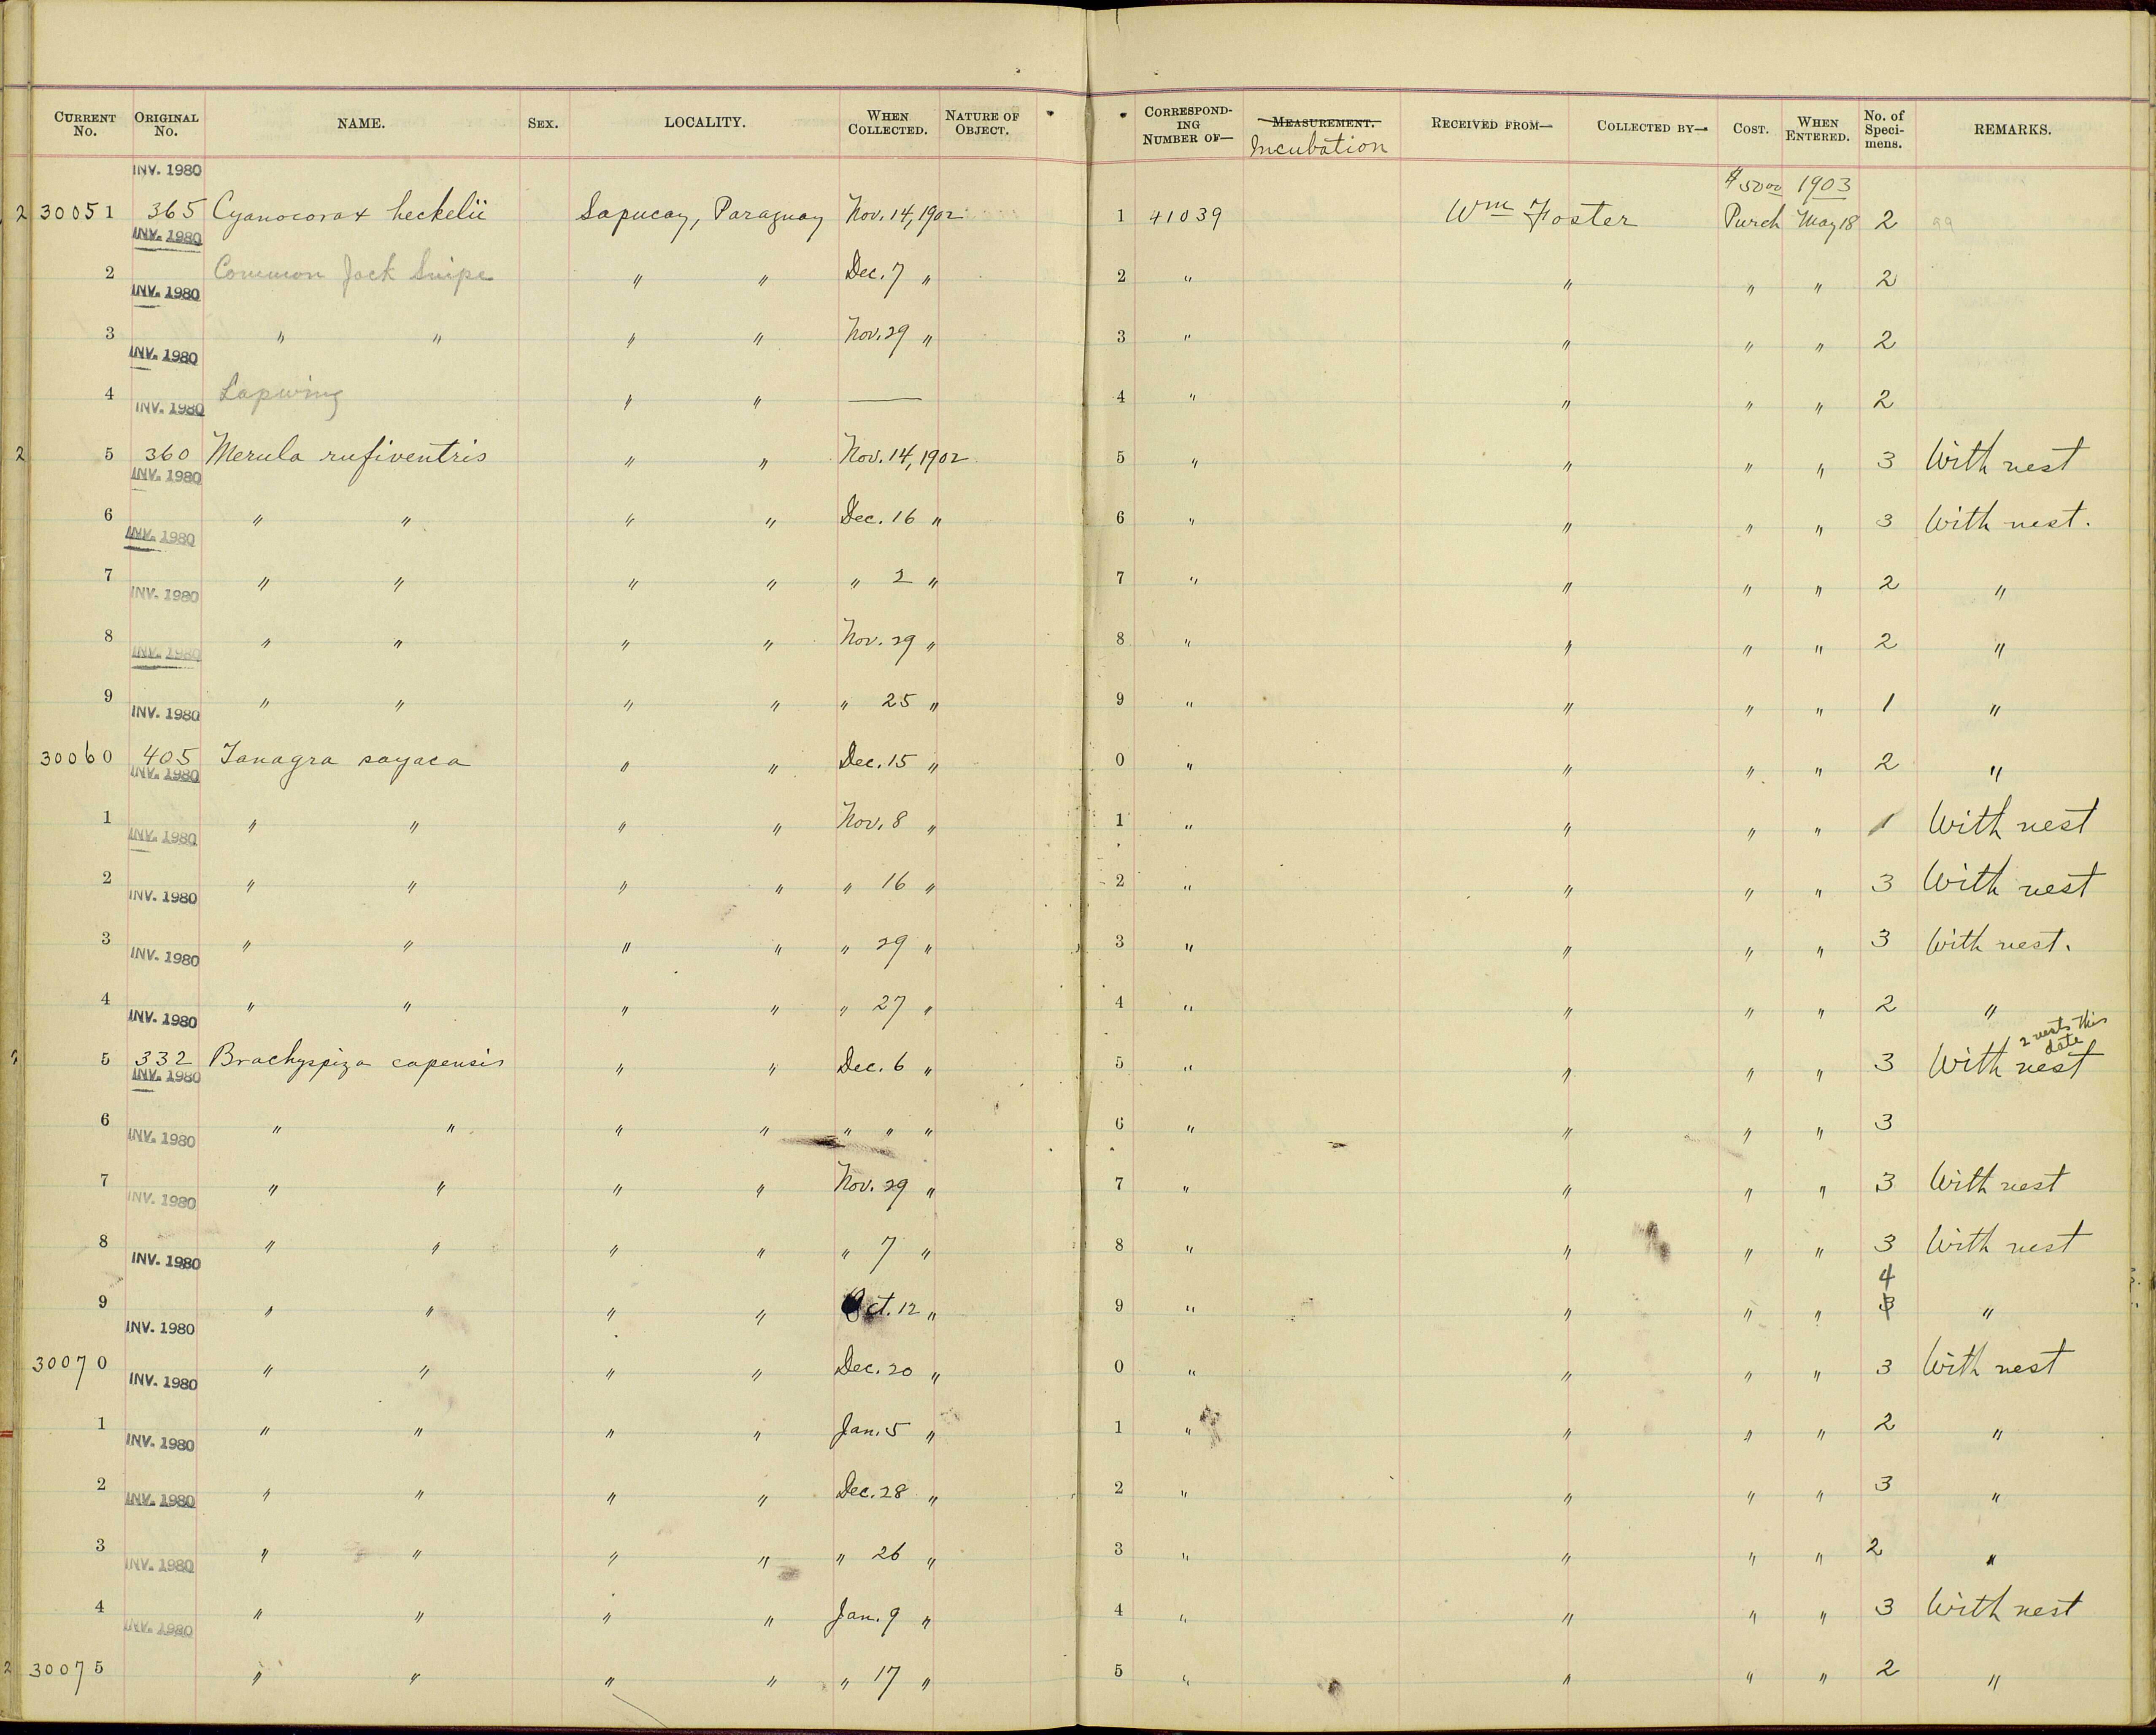 CURRENT No. ORIGINAL No. NAME. SEX. LOCALITY. WHEN COLLECTED. NATURE OF OBJECT. CORRESPONDING NUMBER OF— MEASUREMENT. Incubation RECEIVED FROM— COLLECTED BY— COST. WHEN ENTERED. No. of Specimens. REMARKS.
INV. 1980 $50 00 1903
2 30051 365 Cyanocorax heckelii Sapucay, Paraguay Nov. 14, 1902 1 41039 Wm Foster Purch May 18 2
INV. 1980
2 Common Jack Snipe " " Dec. 7 " 2 " " " " 2
INV. 1980
3 " " " " Nov. 29 " 3 " " " " 2
INV. 1980
4 Lapwing " " — 4 " " " " 2
INV. 1980
2 5 360 Merula rufiventris " " Nov. 14, 1902 5 " " " " 3 With nest
INV. 1980
6 " " " " Dec. 16 " 6 " " " " 3 With nest.
INV. 1980
7 " " " " " 2 " 7 " " " " 2 "
INV. 1980
8 " " " " Nov. 29 " 8 " " " " 2 "
INV. 1980
9 " " " " " 25 " 9 " " " " 1 "
INV. 1980
30060 405 Tanagra sayaca " " Dec. 15 " 0 " " " " 2 "
INV. 1980
1 " " " " Nov. 8 " 1 " " " " 1 With nest
INV. 1980
2 " " " " " 16 " 2 " " " " 3 With nest
INV. 1980
3 " " " " " 29 " 3 " " " " 3 With nest.
INV. 1980
4 " " " " " 27 " 4 " " " " 2 "
INV. 1980 2 nests this date
5 332 Brachyspiza capensis " " Dec. 6 " 5 " " " " 3 With nest
INV. 1980
6 " " " " " " " 6 " " " " 3
INV. 1980
7 " " " " Nov. 29 " 7 " " " " 3 With nest
INV. 1980
8 " " " " " 7 " 8 " " " " 3 With nest
INV. 1980 4
9 " " " " Oct. 12 " 9 " " " " 3 "
INV. 1980
30070 " " " " Dec. 20 " 0 " " " " 3 With nest
INV. 1980
1 " " " " Jan. 5 " 1 " " " " 2 "
INV. 1980
2 " " " " Dec. 28 " 2 " " " " 3 "
INV. 1980
3 " " " " " 26 " 3 " " " " 2 "
INV. 1980
4 " " " " Jan. 9 " 4 " " " " 3 With nest
INV. 1980
2 30075 " " " " " 17 " 5 " " " " 2 "